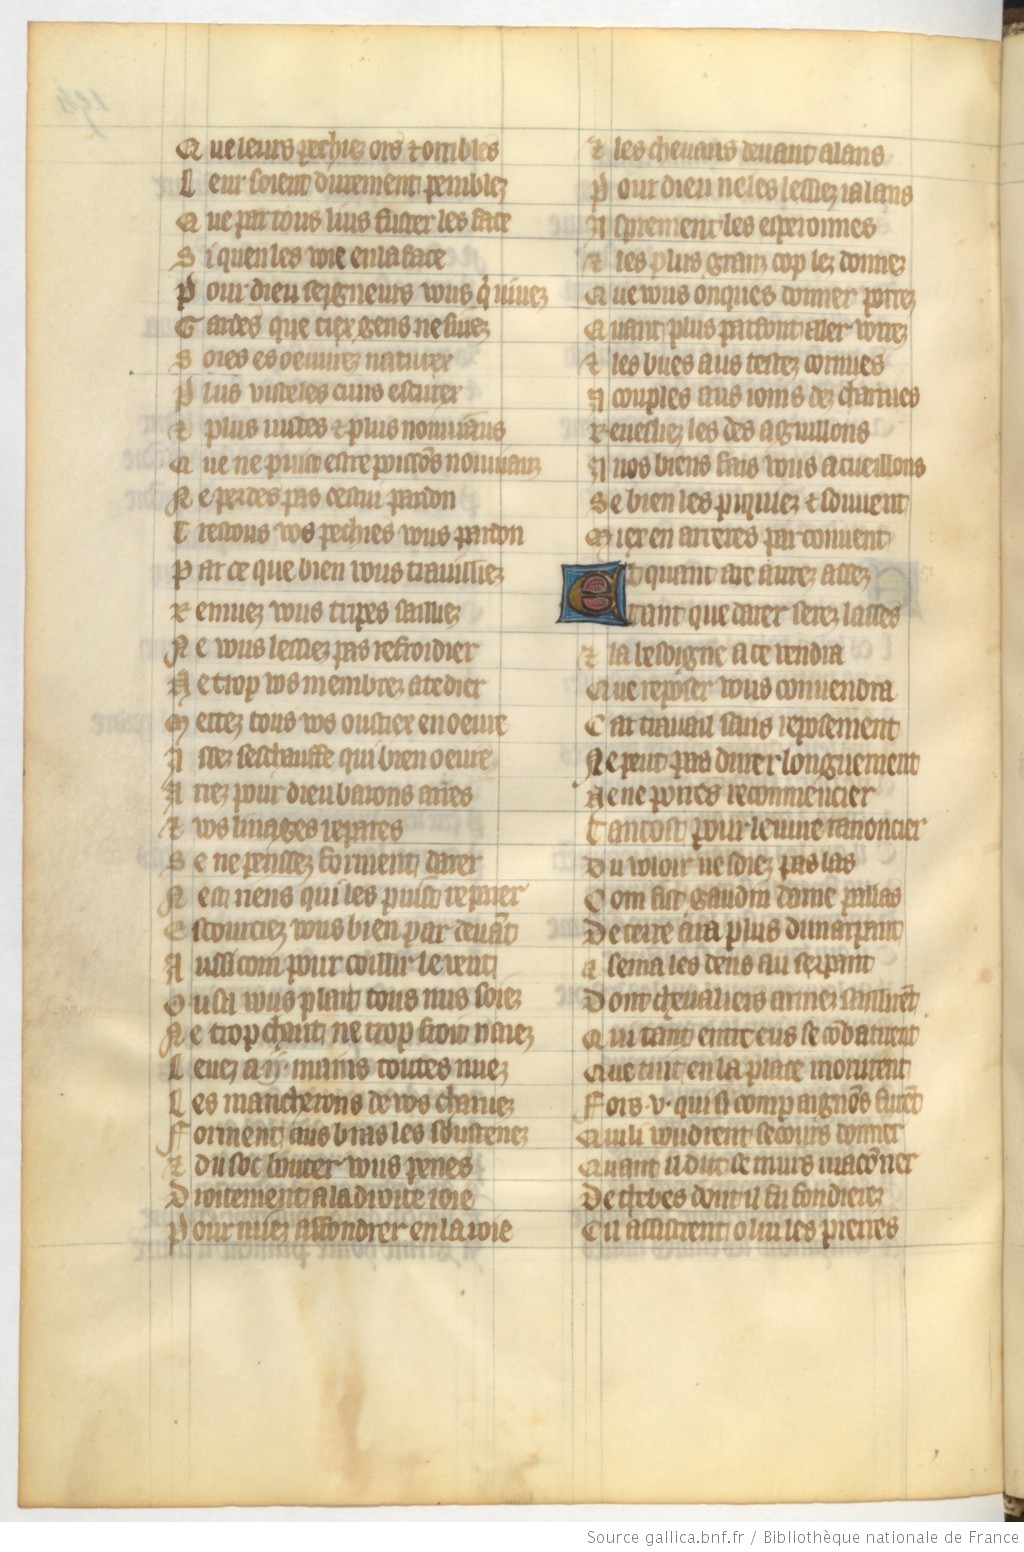 Que leurs pechiez ors et orribles
Leur soient durement penibles
Que par tous lius fuster les face
Si quen les voie en la face
Pour dieu seigneurs vous qui vivez
Gardes que tiex gens ne sivez
Soies es oeuvrez naturex
Plus vistes cuns escurex
Et plus luides et plus nouvians
Que ne puist estre oisons nouviauz
Ne perdes pas cestui pardon
Trestous vos pechies vous pardon
Par ce que bien vous travilliez
Remuez vous tripes sailliez
Ne vous lessiez pas refroidier
Ne trop vos membrez atedier
Metez tous vos oustiex en oeuvre
Assez seschauffe qui bien oeuvre
Arez pour dieu barons ares
Et vos linages repares
Se ne penssez forment darer
Nest riens qui les puist reparer
Escourciez vous bien par devant
Aussi com pour coillir le vent
Ou si vous plait tous nus soiez
Ne trop chaut ne trop froit naiez
Levez a .ii. mains toutes nuez
Les mancherons de vos charuez
Forment aus bras les soustenez
Et du soc bouter vous penes
Droitement a la droite voie
Pour miez affondrer en la voie
Et les chevaus devant alans
Pour dieu ne les lessiez ia lans
Asprement les esperonnes
Et les plus granz cop lez donnez
Que vous onques donner porrez
Quant plus parfont arer vorrez
Et les bues aus testez cornues
Acouples aus ious dez charues
Revelliez les des aguillons
A nos biens fais vous acueillons
Se bien les piquiez et souvent
Miex en arreres par convent
Et quant are aurez assez
Tant que darer serez lasses
Et la besoigne a ce vendra
Que reposer vous convendra
Car travail sans reposement
Ne peut pas durer longuement
Ne ne porres recommencier
Tantost pour leuvre ranoncier
Du voloir ne soiez pas las
Com fist Gaudin dame pallas
De terre ara plus dun arpant
Et sema les dens au serpant
Dont chevaliers armez saillirent
Qui tant entre eus se combatirent
Que tuit en la place morurent
Fors .v. qui si compaignons furent
Qui li voudrent secours donner
Quant il dut ce murs maconner
De thebes dont il fu fondierez
Cil assistrent o lui les pierres
Source gallica.bnf.fr / Bibliothèque nationale de France